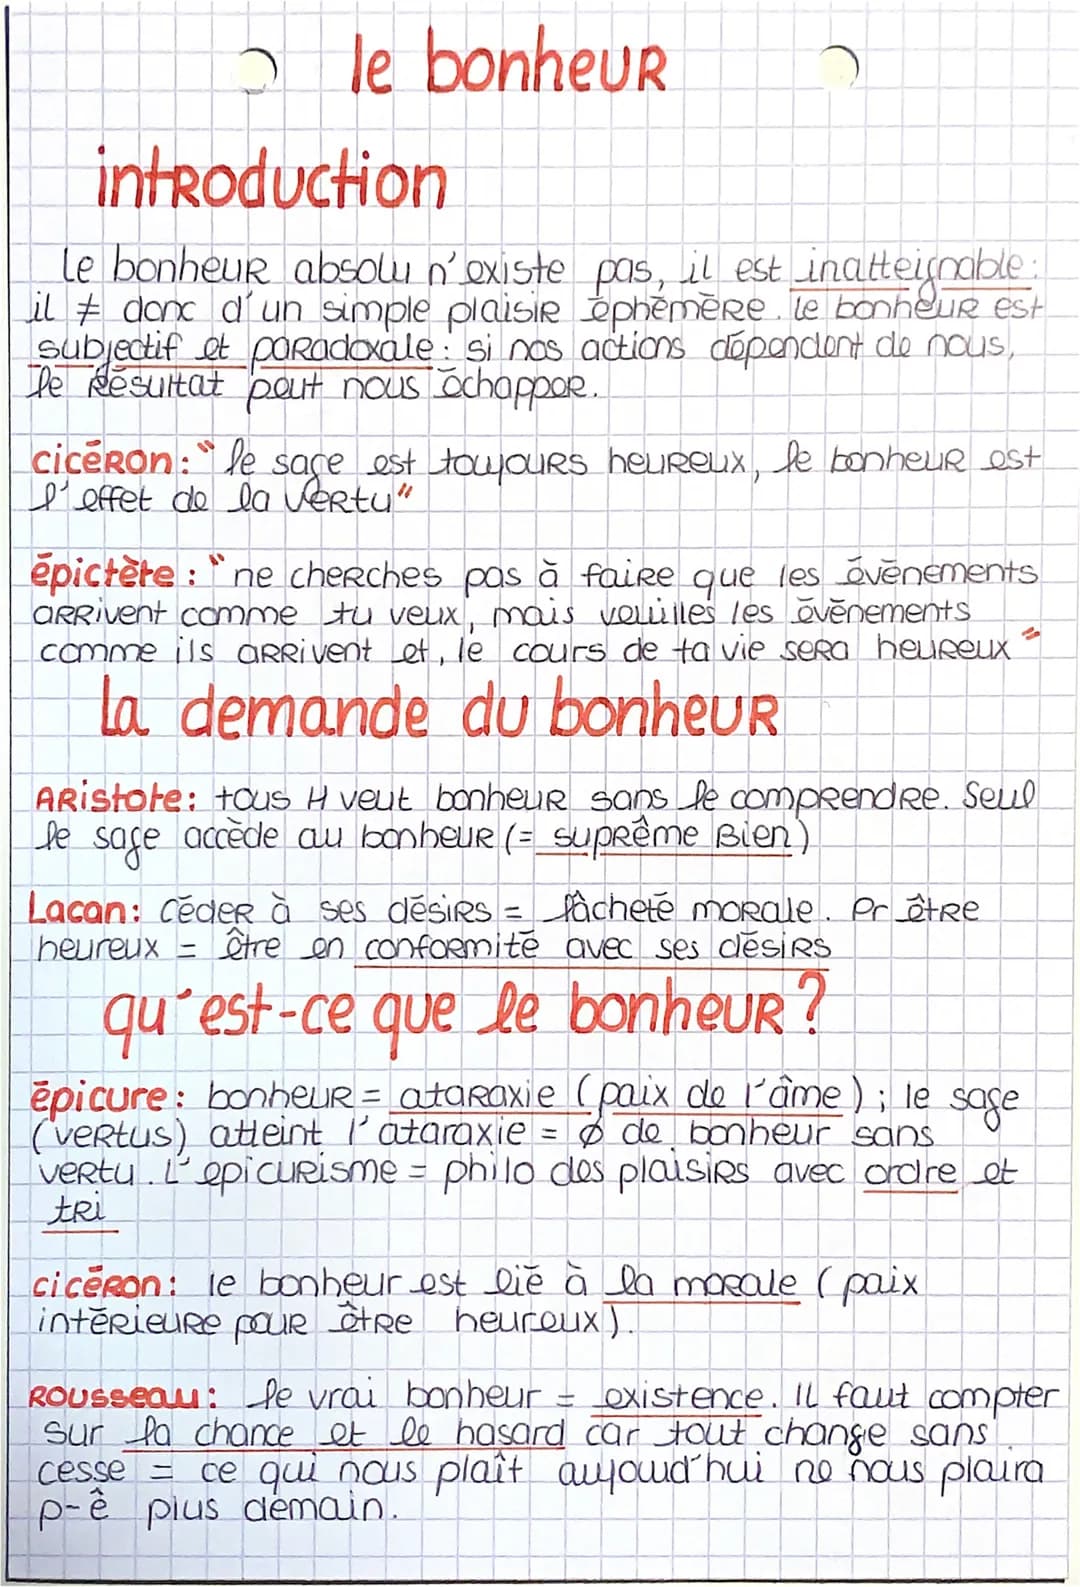 le bonheur
introduction
Le bonheur absolu n'existe pas, il est inatteignable :
il ≠ donc d'un simple plaisir éphémère. Le bonheur est
subjectif et paradoxale : si nos actions dépendent de nous,
le résultat peut nous échapper.
cicéron : "le sage est toujours heureux, le bonheur est
l'effet de la vertu"
épictète : "ne cherches pas à faire que les évènements
arrivent comme tu veux, mais veuilles les évènements
comme ils arrivent et, le cours de ta vie sera heureux"
La demande du bonheur
Aristote : tous H veut bonheur sans le comprendre. Seul
le sage accède au bonheur (= suprême Bien)
Lacan : Céder à ses désirs = lâcheté morale. Pr être
heureux = être en conformité avec ses désirs
qu'est-ce que le bonheur ?
épicure : bonheur = ataraxie (paix de l'âme) ; le sage
(vertus) atteint l'ataraxie = ∅ de bonheur sans
vertu. L'epicurisme = philo des plaisirs avec ordre et
tri
cicéron : le bonheur est lié à la morale (paix
intérieure pour être heureux).
Rousseau : le vrai bonheur = existence. Il faut compter
sur la chance et le hasard car tout change sans
cesse = ce qui nous plaît aujoud'hui ne nous plaira
p-ê plus demain.